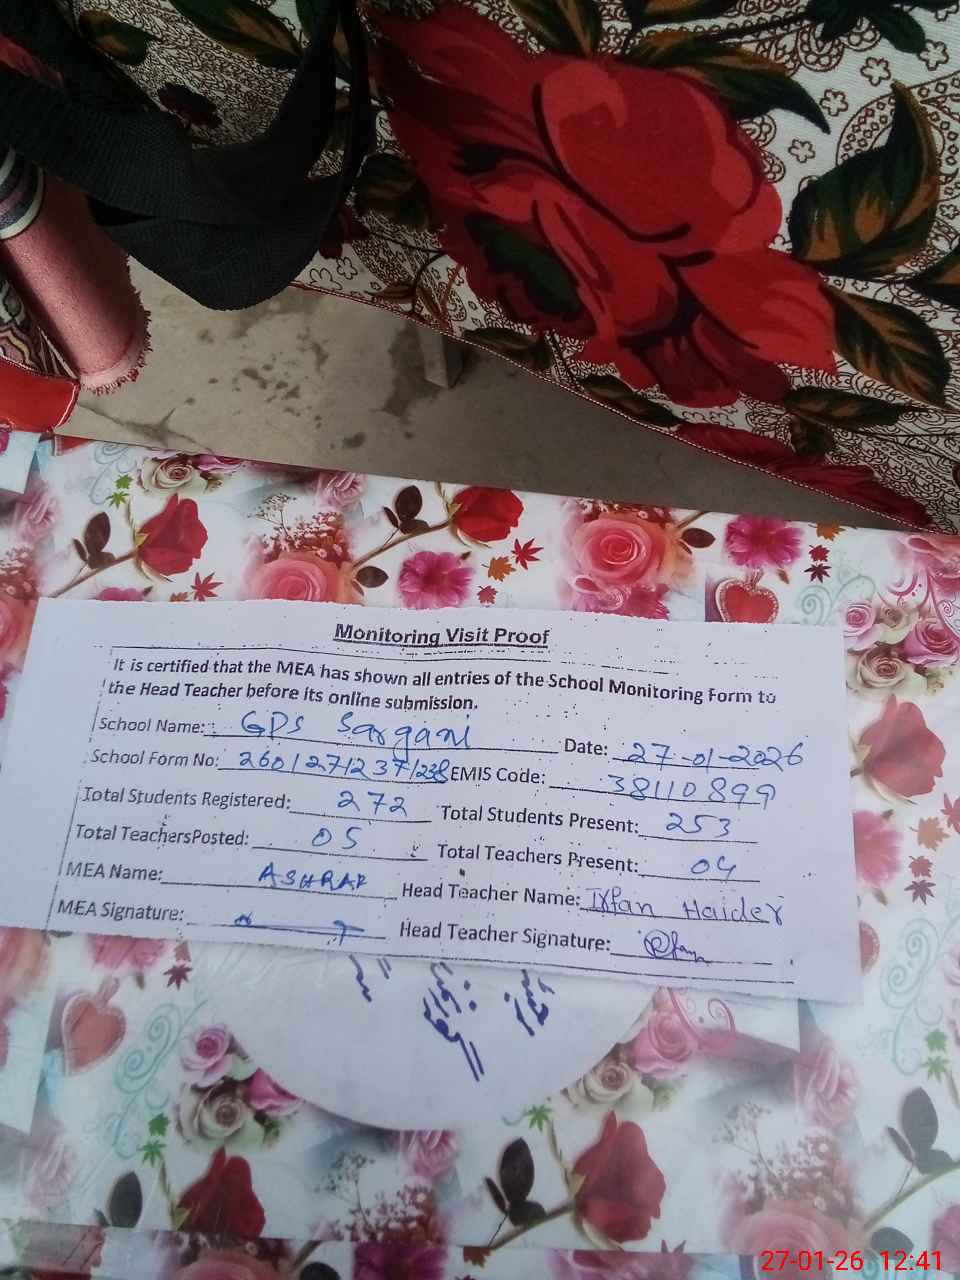 Monitoring Visit Proof
It is certified that the MEA has shown all entries of the School Monitoring Form to
the Head Teacher before its online submission.
School Name: GPS Sargani Date: 27-01-2026
School Form No: 26012712371238 EMIS Code: 38110899
Total Students Registered: 272 Total Students Present: 253
Total TeachersPosted: 05 Total Teachers Present: 04
MEA Name: ASHRAF Head Teacher Name: Irfan Haider
MEA Signature: Head Teacher Signature: Irfan
27-01-26 12:41